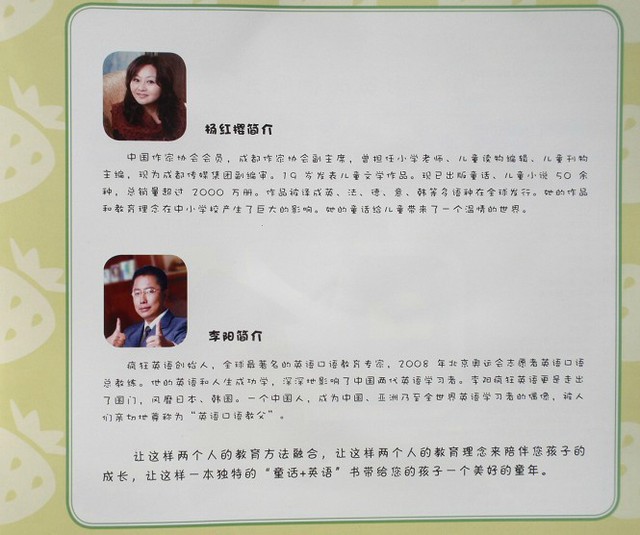 杨红樱简介
中国作家协会会员，成都作家协会副主席，曾担任小学老师、儿童读物编辑、儿童刊物
主编，现为成都传媒集团副编审。19 岁发表儿童文学作品。现已出版童话、儿童小说 50 余
种，总销量超过 2000 万册。作品被译成英、法、德、意、韩等多语种在全球发行。她的作品
和教育理念在中小学校产生了巨大的影响。她的童话给儿童带来了一个温情的世界。
李阳简介
疯狂英语创始人，全球最著名的英语口语教育专家，2008 年北京奥运会志愿者英语口语
总教练。他的英语和人生成功学，深深地影响了中国两代英语学习者。李阳疯狂英语更是走出
了国门，风靡日本、韩国。一个中国人，成为中国、亚洲乃至全世界英语学习者的偶像，被人
们亲切地尊称为“英语口语教父”。
让这样两个人的教育方法融合，让这样两个人的教育理念来陪伴您孩子的
成长，让这样一本独特的“童话+英语”书带给您的孩子一个美好的童年。